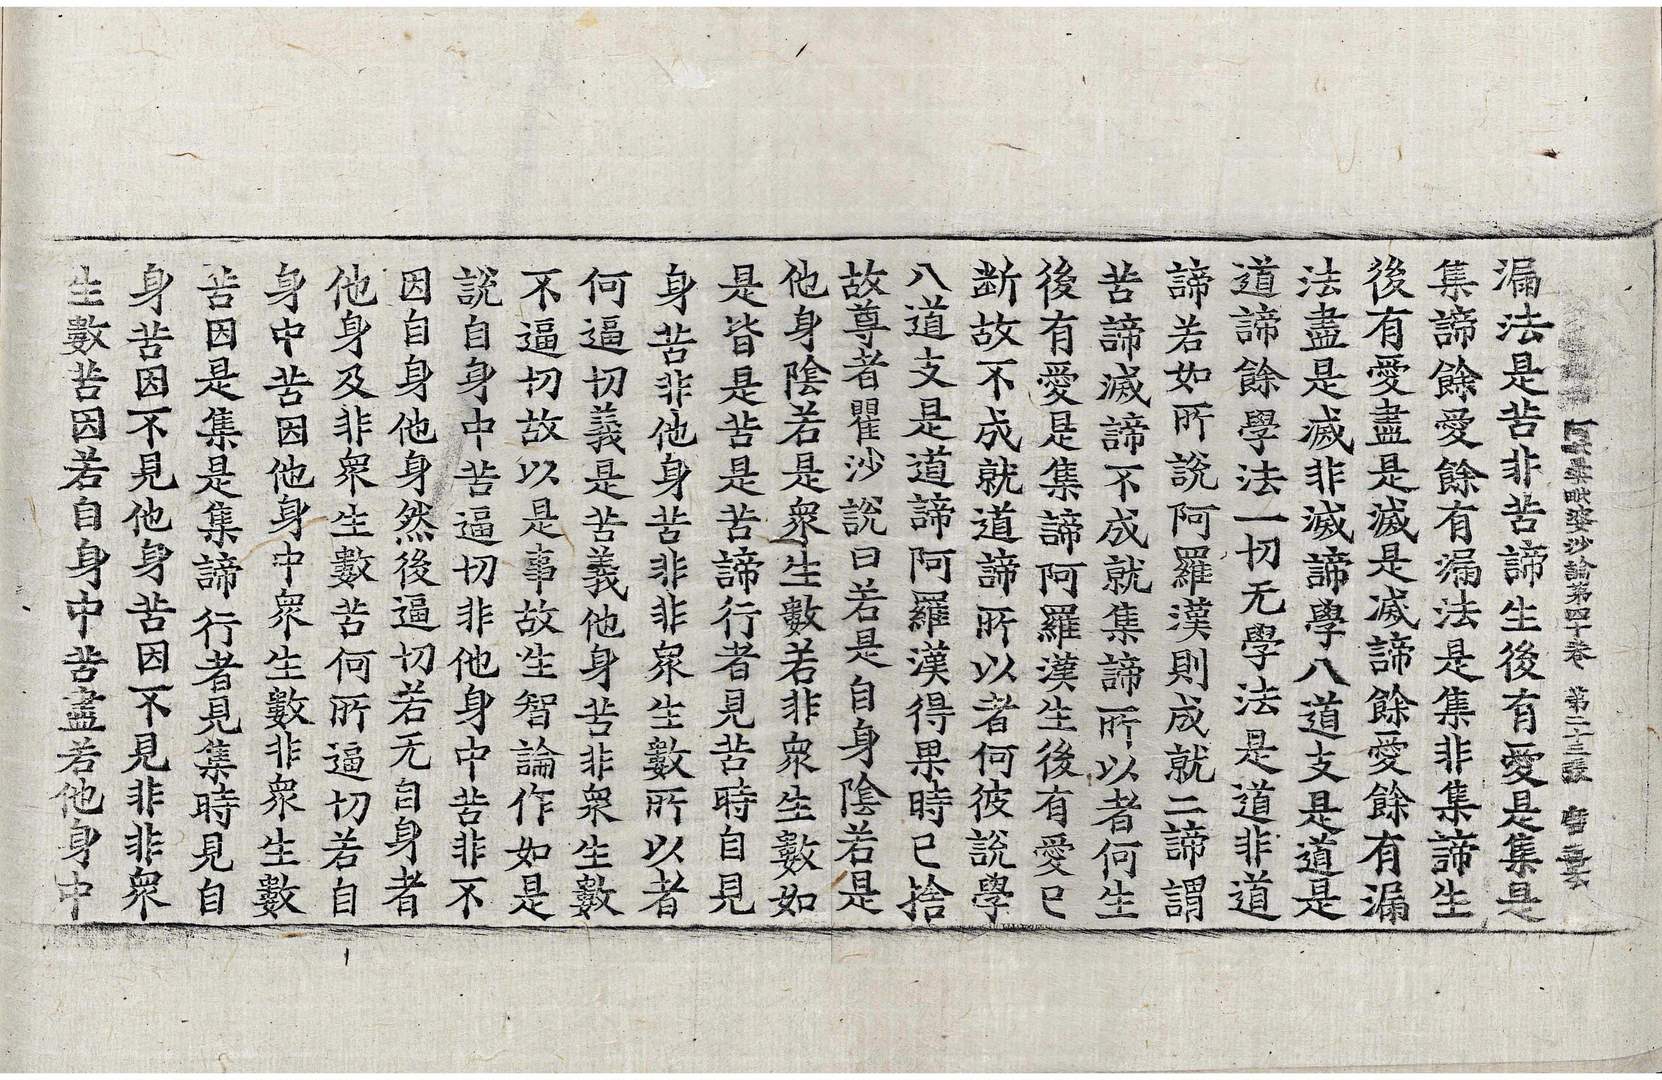 阿毗曇毗婆沙論第四十卷 第二十三張
漏法是苦非苦諦生後有愛是集是
集諦餘愛餘有漏法是集非集諦生
後有愛盡是滅是滅諦餘愛餘有漏
法盡是滅非滅諦學八道支是道是
道諦餘學法一切无學法是道非道
諦若如所說阿羅漢則成就二諦謂
苦諦滅諦不成就集諦所以者何生
後有愛是集諦阿羅漢生後有愛已
斷故不成就道諦所以者何彼說學
八道支是道諦阿羅漢得果時已捨
故尊者瞿沙說曰若是自身陰若是
他身陰若是衆生數若非衆生數如
是皆是苦是苦諦行者見苦時自見
身苦非他身苦非非衆生數所以者
何逼切義是苦義他身苦非衆生數
不逼切故以是事故生智論作如是
說自身中苦逼切非他身中苦非不
因自身他身然後逼切若无自身者
他身及非衆生數苦何所逼切若自
身中苦因他身中衆生數非衆生數
苦因是集是集諦行者見集時見自
身苦因不見他身苦因不見非非衆
生數苦因若自身中苦盡若他身中